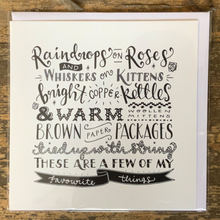 Raindrops on Roses
AND
Whiskers on Kittens
bright COPPER kettles
& WARM WOOLLEN MITTENS
BROWN PAPER PACKAGES
tied up with string
THESE ARE A FEW OF MY
favourite things